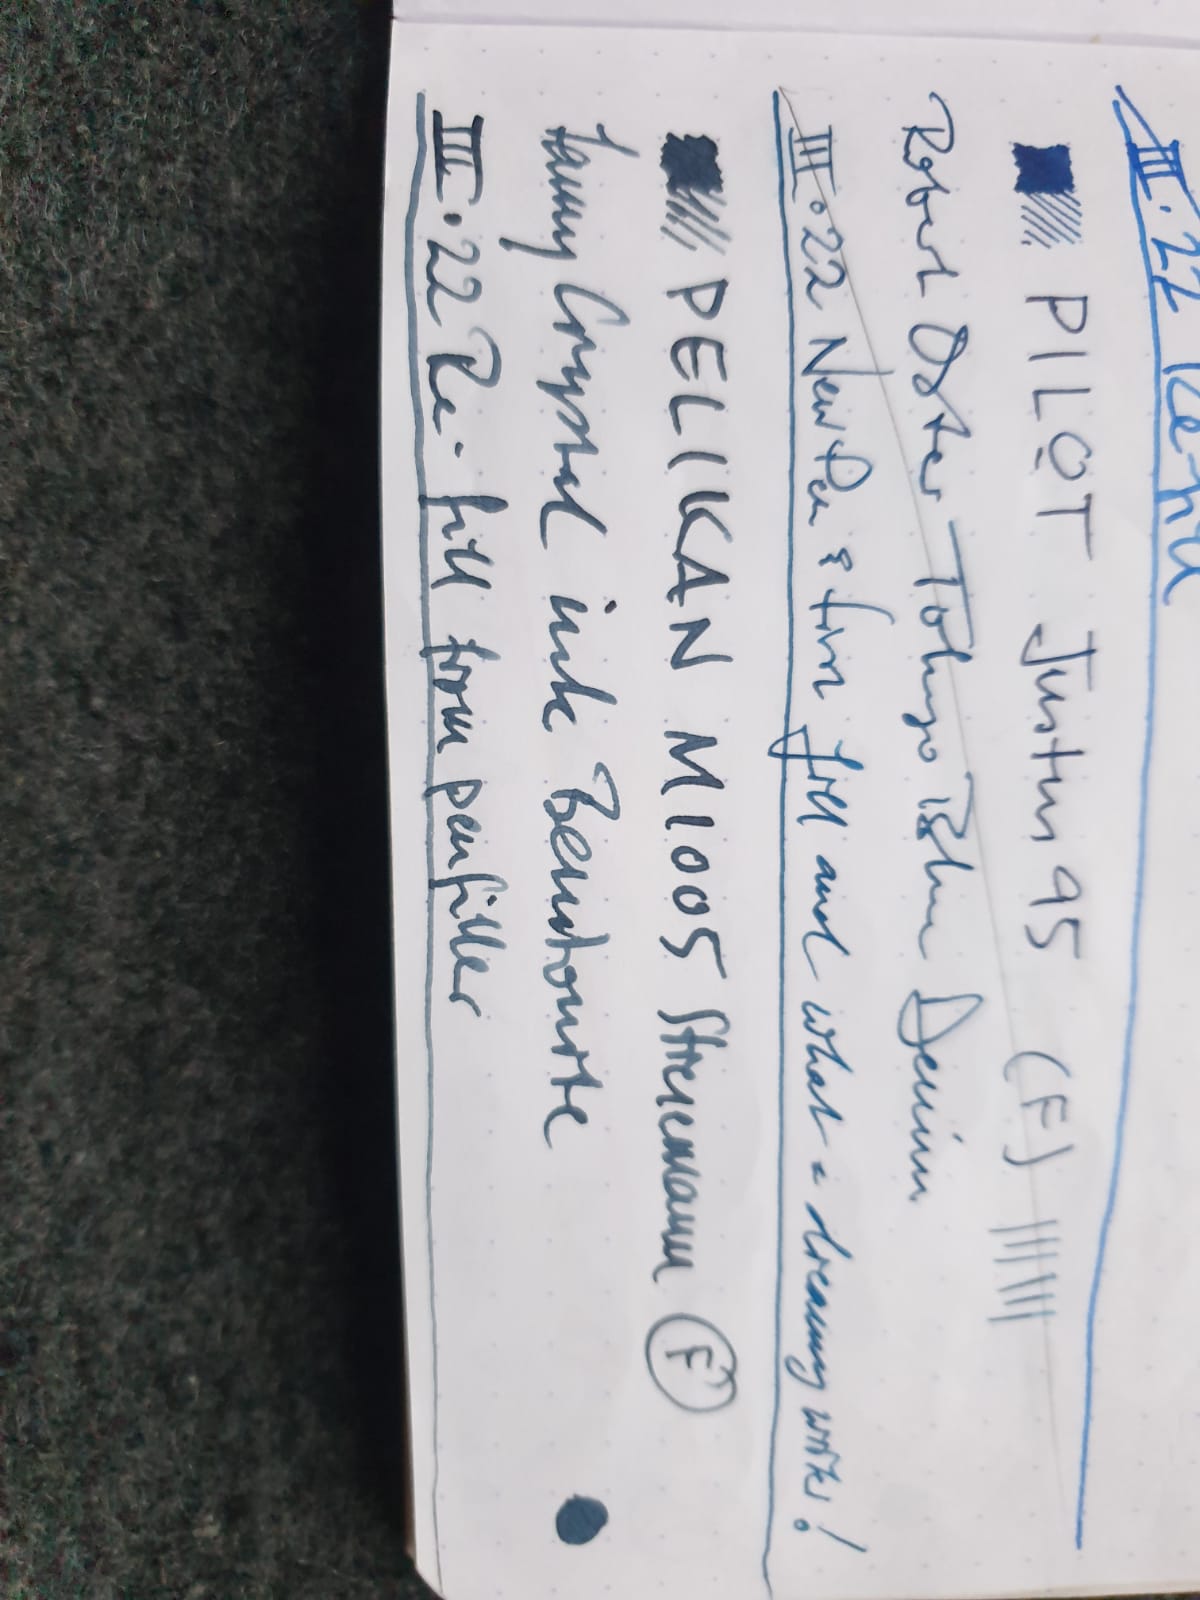 III. 22 Re-fill
PILOT Justus 95 (F)
Robert Oster Tokyo Blue Denim
III. 22 New Pen & first fill and what a dreamy writer!
PELIKAN M1005 Stresemann F
Fanny Crystal ink Bentonite
III. 22 Re-fill from penfiller